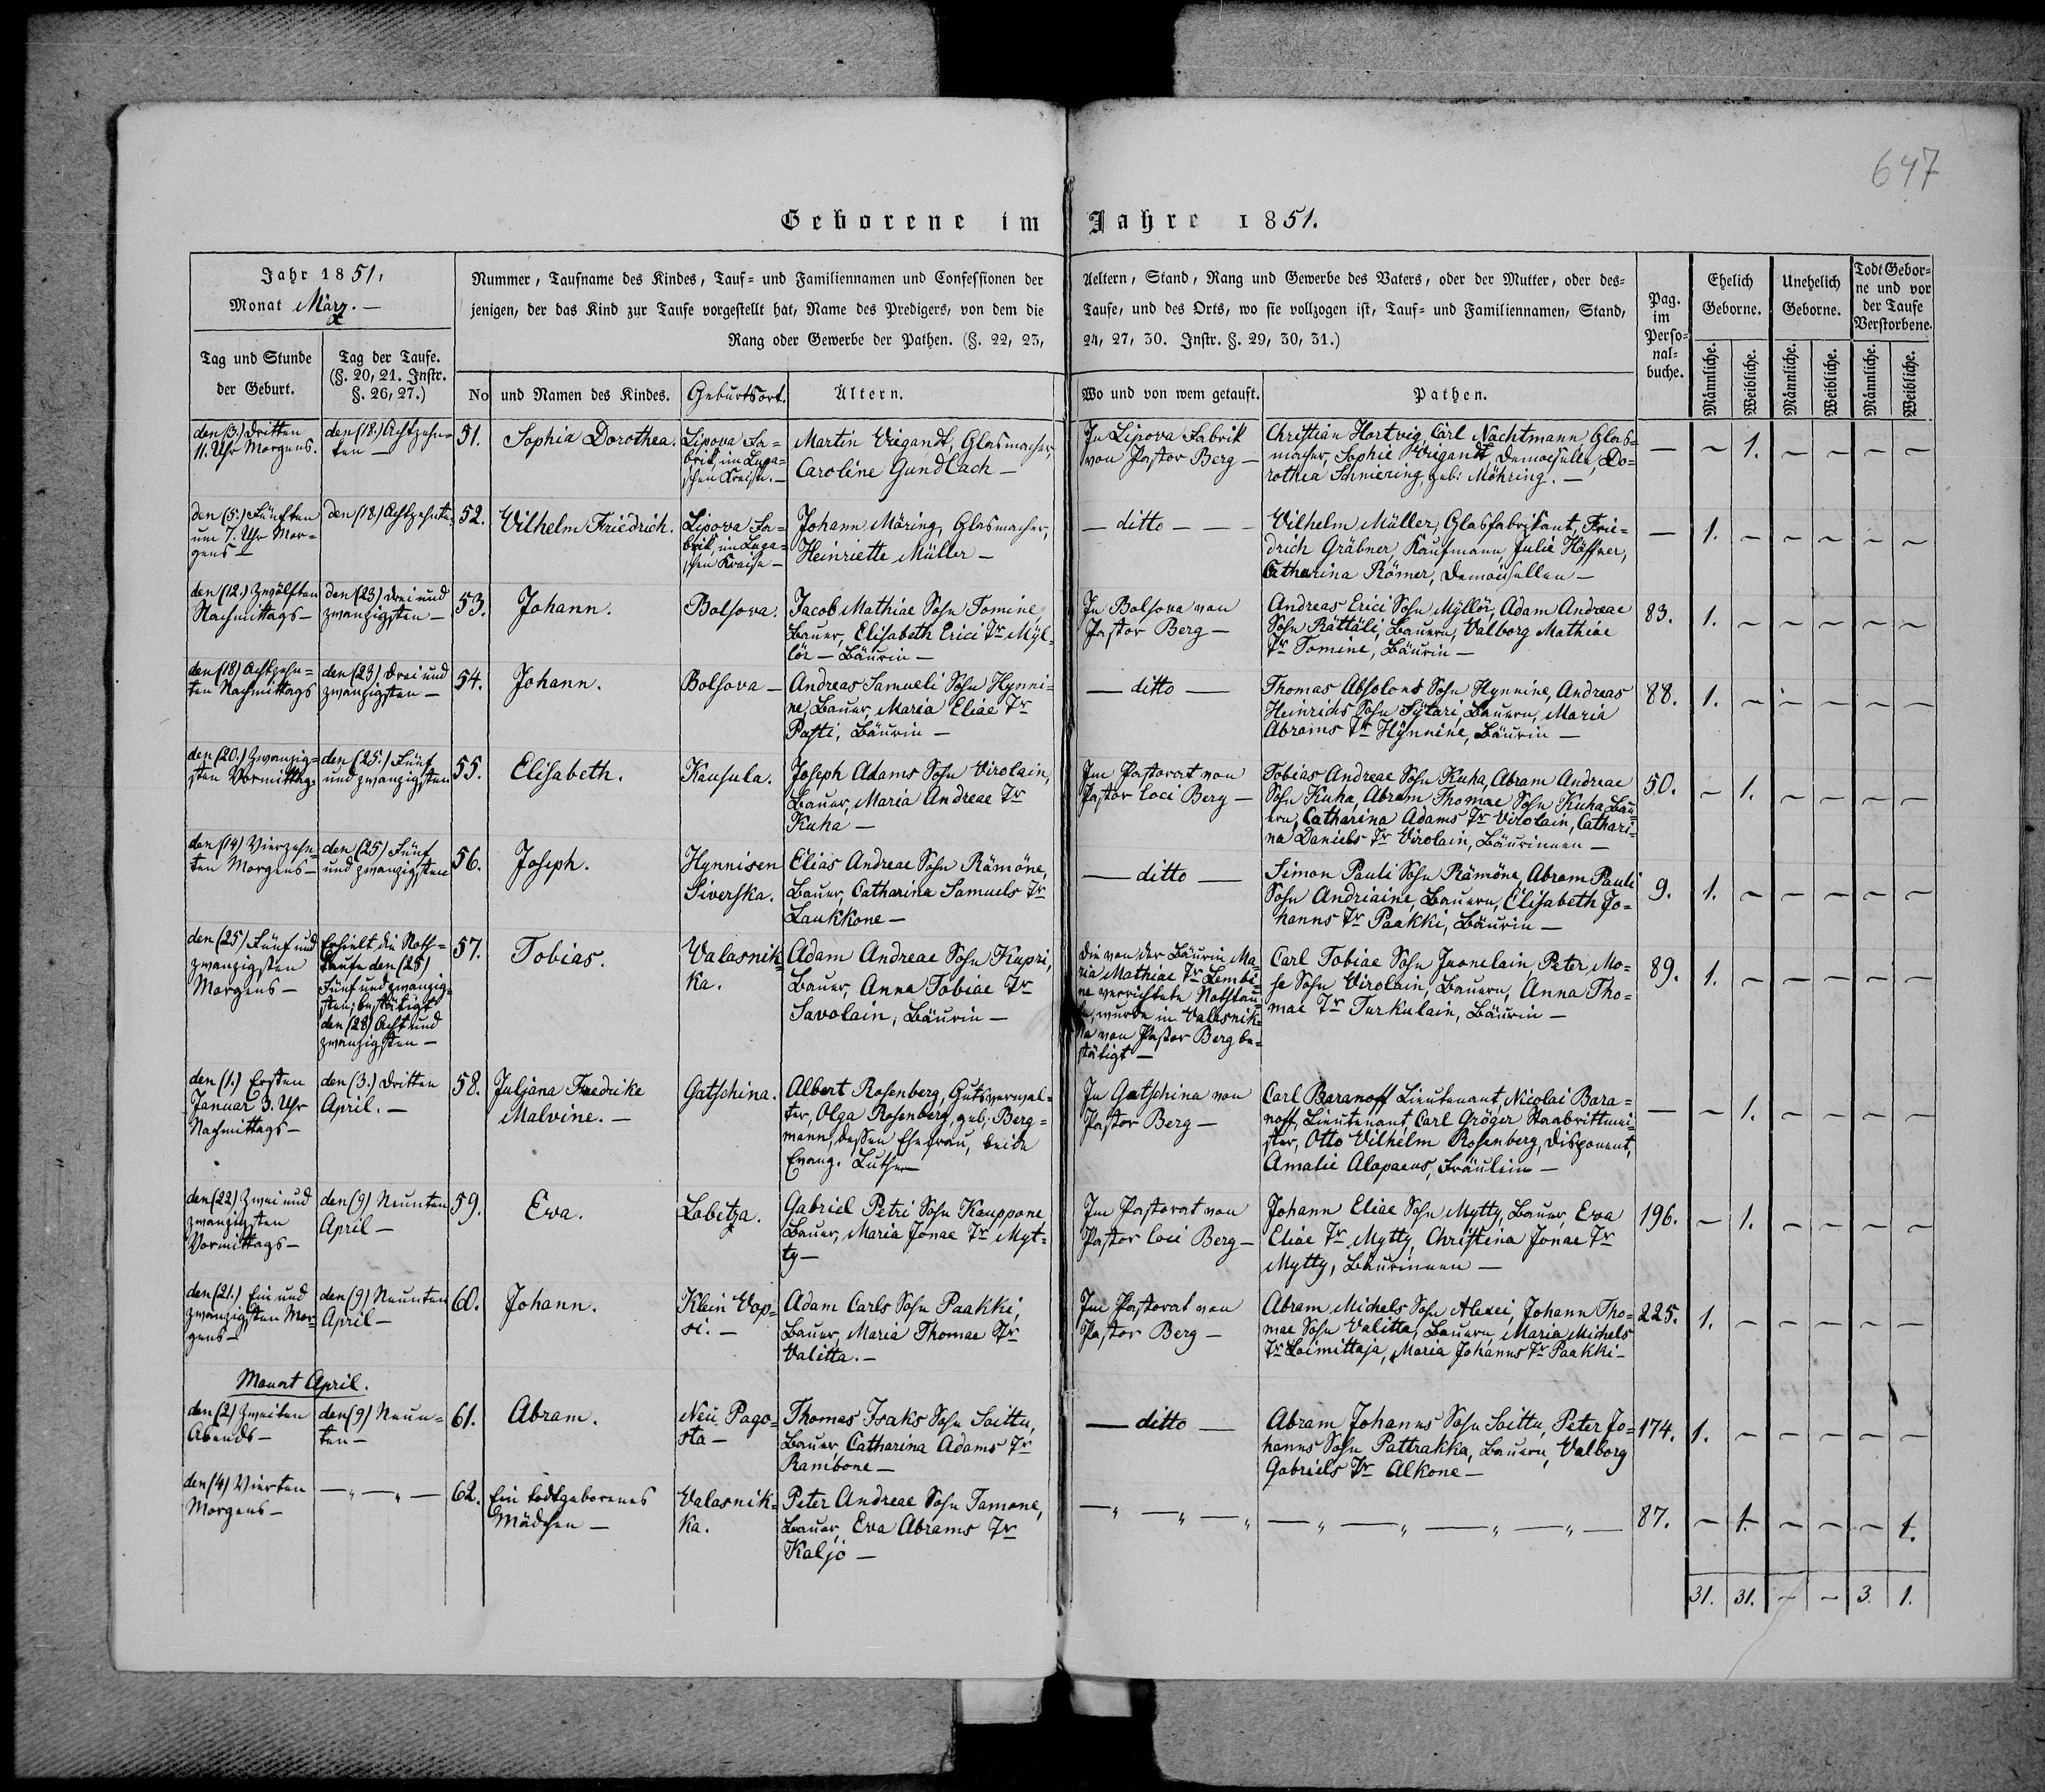 647
Geborene im Jahre 1851.
Jahr 1851,
Monat März. —
Nummer, Taufname des Kindes, Tauf- und Familiennamen und Confessionen der
jenigen, der das Kind zur Taufe vorgestellt hat, Name des Predigers, von dem die
Rang oder Gewerbe der Pathen. (§. 22, 23,
Aeltern, Stand, Rang und Gewerbe des Vaters, oder der Mutter, oder des-
Taufe, und des Orts, wo sie vollzogen ist, Tauf- und Familiennamen, Stand,
24, 27, 30. Instr. §. 29, 30, 31.)
Pag.
im
Perso-
nal-
buche.
Ehelich
Geborne.
Unehelich
Geborne.
Todt Gebor-
ne und vor
der Taufe
Verstorbene.
Tag und Stunde
der Geburt.
Tag der Taufe.
(§. 20, 21. Instr.
§. 26, 27.)
No und Namen des Kindes.
Geburtsort.
Ältern.
Wo und von wem getauft.
Pathen.
Männliche. Weibliche. Männliche. Weibliche. Männliche. Weibliche.
den (3.) Dritten
11. Uhr Morgens.
den (18.) Achtzehn-
ten —
51. Sophia Dorothea.
Lipova Fa-
brik, im Luga-
schen Kreise. —
Martin Viegandt, Glasmacher,
Caroline Gundlach —
In Lipova Fabrik
von Pastor Berg —
Christian Hartvig, Carl Nachtmann, Glas-
macher, Sophie Wiegandt, Demoiselle, Do-
rothea Schmiering, geb: Möhring. —
— — 1. — — — —
den (5.) Fünften
um 7. Uhr Mor-
gens —
den (18.) Achtzehnte.
52. Vilhelm Friedrich.
Lipova Fa-
brik, im Luga-
schen Kreise —
Johann Möring, Glasmacher,
Heinriette Müller —
— ditto — —
Vilhelm Müller, Glasfabrikant, Frie-
drich Gräbner, Kaufmann, Julie Höffner,
Catharina Römer, Demoisellen —
— 1. — — — — —
den (12.) Zwölften
Nachmittags —
den (23) Drei und
zwanzigsten —
53. Johann.
Bolsova.
Jacob Mathiae Sohn Tomine,
Bauer, Elisabeth Erici Tr Myl-
lör — Bäurin —
In Bolsova von
Pastor Berg —
Andreas Erici Sohn Myllör, Adam Andreae
Sohn Rättäli, Bauern, Valborg Mathiae
Tr Tomine, Bäurin —
83. 1. — — — — —
den (18) Achtzehn-
ten Nachmittags
den (23) Drei und
zwanzigsten —
54. Johann.
Bolsova —
Andreas Samueli Sohn Hynni-
ne, Bauer, Maria Eliae Tr
Pasti, Bäurin —
— ditto —
Thomas Absolons Sohn Hynnine, Andreas
Heinrichs Sohn Sytari, Bauern, Maria
Abrams Tr Hynnine, Bäurin —
88. 1. — — — — —
den (20.) Zwanzig-
sten Vormittag.
den (25.) Fünf
und zwanzigsten
55. Elisabeth.
Kausula.
Joseph Adams Sohn Virolain,
Bauer, Maria Andreae Tr
Kuha —
Im Pastorat von
Pastor loci Berg —
Tobias Andreae Sohn Kuha, Abram Andreae
Sohn Kuha, Abram Thomae Sohn Kuha, Bau-
ern, Catharina Adams Tr Virolain, Cathari-
na Daniels Tr Virolain, Bäurinnen —
50. — 1. — — — —
den (14) Vierzehn-
ten Morgens —
den (25) Fünf
und zwanzigsten
56. Joseph.
Hynnisen
Siverska.
Elias Andreae Sohn Rämöne,
Bauer, Catharina Samuels Tr
Laukkone —
— ditto —
Simon Pauli Sohn Rämöne, Abram Pauli
Sohn Andriaine, Bauern, Elisabeth Jo-
hanns Tr Paakki, Bäurin —
9. 1. — — — — —
den (25) Fünf und
zwanzigsten
Morgens —
Erhielt die Noth-
taufe den (25)
Fünf und zwanzig-
sten; bestätigt
den (28) Acht und
zwanzigsten —
57. Tobias.
Valasnik-
ka.
Adam Andreae Sohn Kupri,
Bauer, Anna Tobiae Tr
Savolain, Bäurin —
Die von der Bäurin Ma-
ria Mathiae Tr Lembi-
ne verrichtete Nothtau-
fe, wurde in Valasnik-
ka von Pastor Berg be-
stätigt —
Carl Tobiae Sohn Juonelain, Peter Mo-
se Sohn Virolain, Bauern, Anna Tho-
mae Tr Turkulain, Bäurin —
89. 1. — — — — —
den (1.) Ersten
Januar 3. Uhr
Nachmittags —
den (3.) Dritten
April. —
58. Juljana Fredrike
Malvine. —
Gatschina.
Albert Rosenberg, Gutsverwal-
ter, Olga Rosenberg, geb. Berg-
mann, dessen Ehefrau, beide
Evang. Luther —
In Gatschina von
Pastor Berg —
Carl Baranoff Lieutenant, Nicolai Bara-
noff, Lieutenant, Carl Gröger Staabrittmei-
ster, Otto Vilhelm Rosenberg, Disponent,
Amalie Alopaeus, Fräulein —
— — 1. — — — —
den (22) Zwei und
zwanzigsten
Vormittags —
den (9) Neunten
April —
59. Eva.
Lobitza.
Gabriel Petri Sohn Kauppone
Bauer, Maria Jonae Tr Myt-
ty —
Im Pastorat von
Pastor loci Berg —
Johann Eliae Sohn Mytty, Bauer, Eva
Eliae Tr Mytty, Christina Jonae Tr
Mytty, Bäurinnen —
196. — 1. — — — —
den (21.) Ein und
zwanzigsten Mor-
gens —
den (9) Neunten
April —
60. Johann.
Klein Vop-
si. —
Adam Carls Sohn Paakki,
Bauer, Maria Thomae Tr
Valitta. —
Im Pastorat von
Pastor Berg —
Abram Michels Sohn Alexei, Johann Tho-
mae Sohn Valitta, Bauern, Maria Michels
Tr Loimittaja, Maria Johanns Tr Paakki —
225. 1. — — — — —
Monat April.
den (2) Zweiten
Abends —
den (9) Neun-
ten —
61. Abram.
Neu Pago-
sta —
Thomas Isaks Sohn Soittu,
Bauer, Catharina Adams Tr
Rambone —
— ditto —
Abram Johanns Sohn Soittu, Peter Jo-
hanns Sohn Pattrakka, Bauern, Valborg
Gabriels Tr Alkone —
174. 1. — — — — —
den (4) Vierten
Morgens —
— „ — „ —
62. Ein todtgeborenes
Mädchen —
Valasnik-
ka.
Peter Andreae Sohn Tamone,
Bauer, Eva Abrams Tr
Kaljo —
— „ — „ — „ — „ — „ — „ — „ —
87. — 1. — — — 1.
31. 31. — — 3. 1.